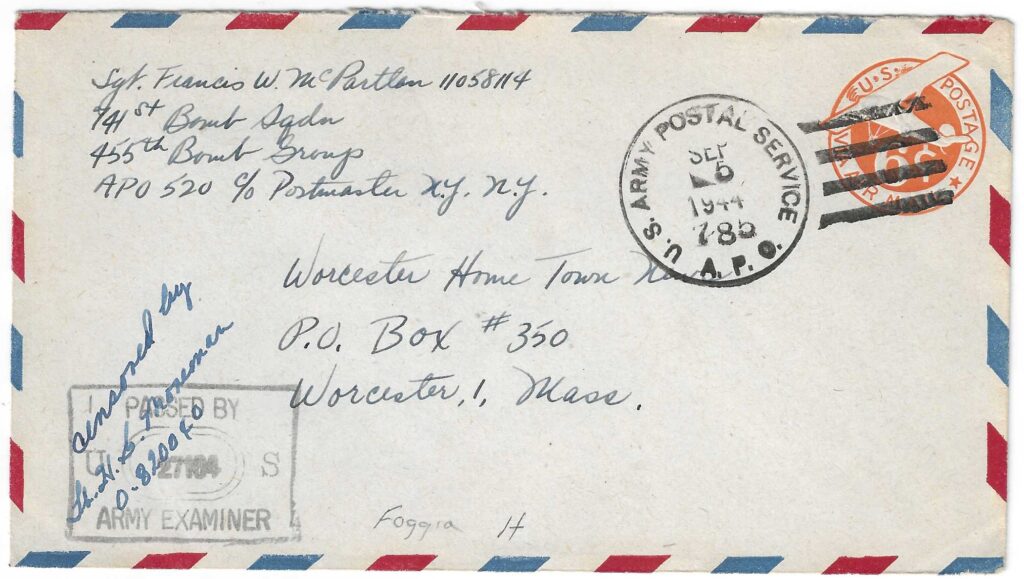 Sgt. Francis W. McPartlan 11058114
741st Bomb Sqdn
455th Bomb Group
APO 520 c/o Postmaster N.Y. N.Y.
U.S. POSTAGE
VIA AIR MAIL
6¢
U.S. ARMY POSTAL SERVICE
SEP
5
1944
785
A.P.O.
Worcester Home Town
P.O. Box #350
Worcester, 1, Mass.
censored by
Lt. H. S.
O-820040
PASSED BY
U S
27104
ARMY EXAMINER
Foggia H